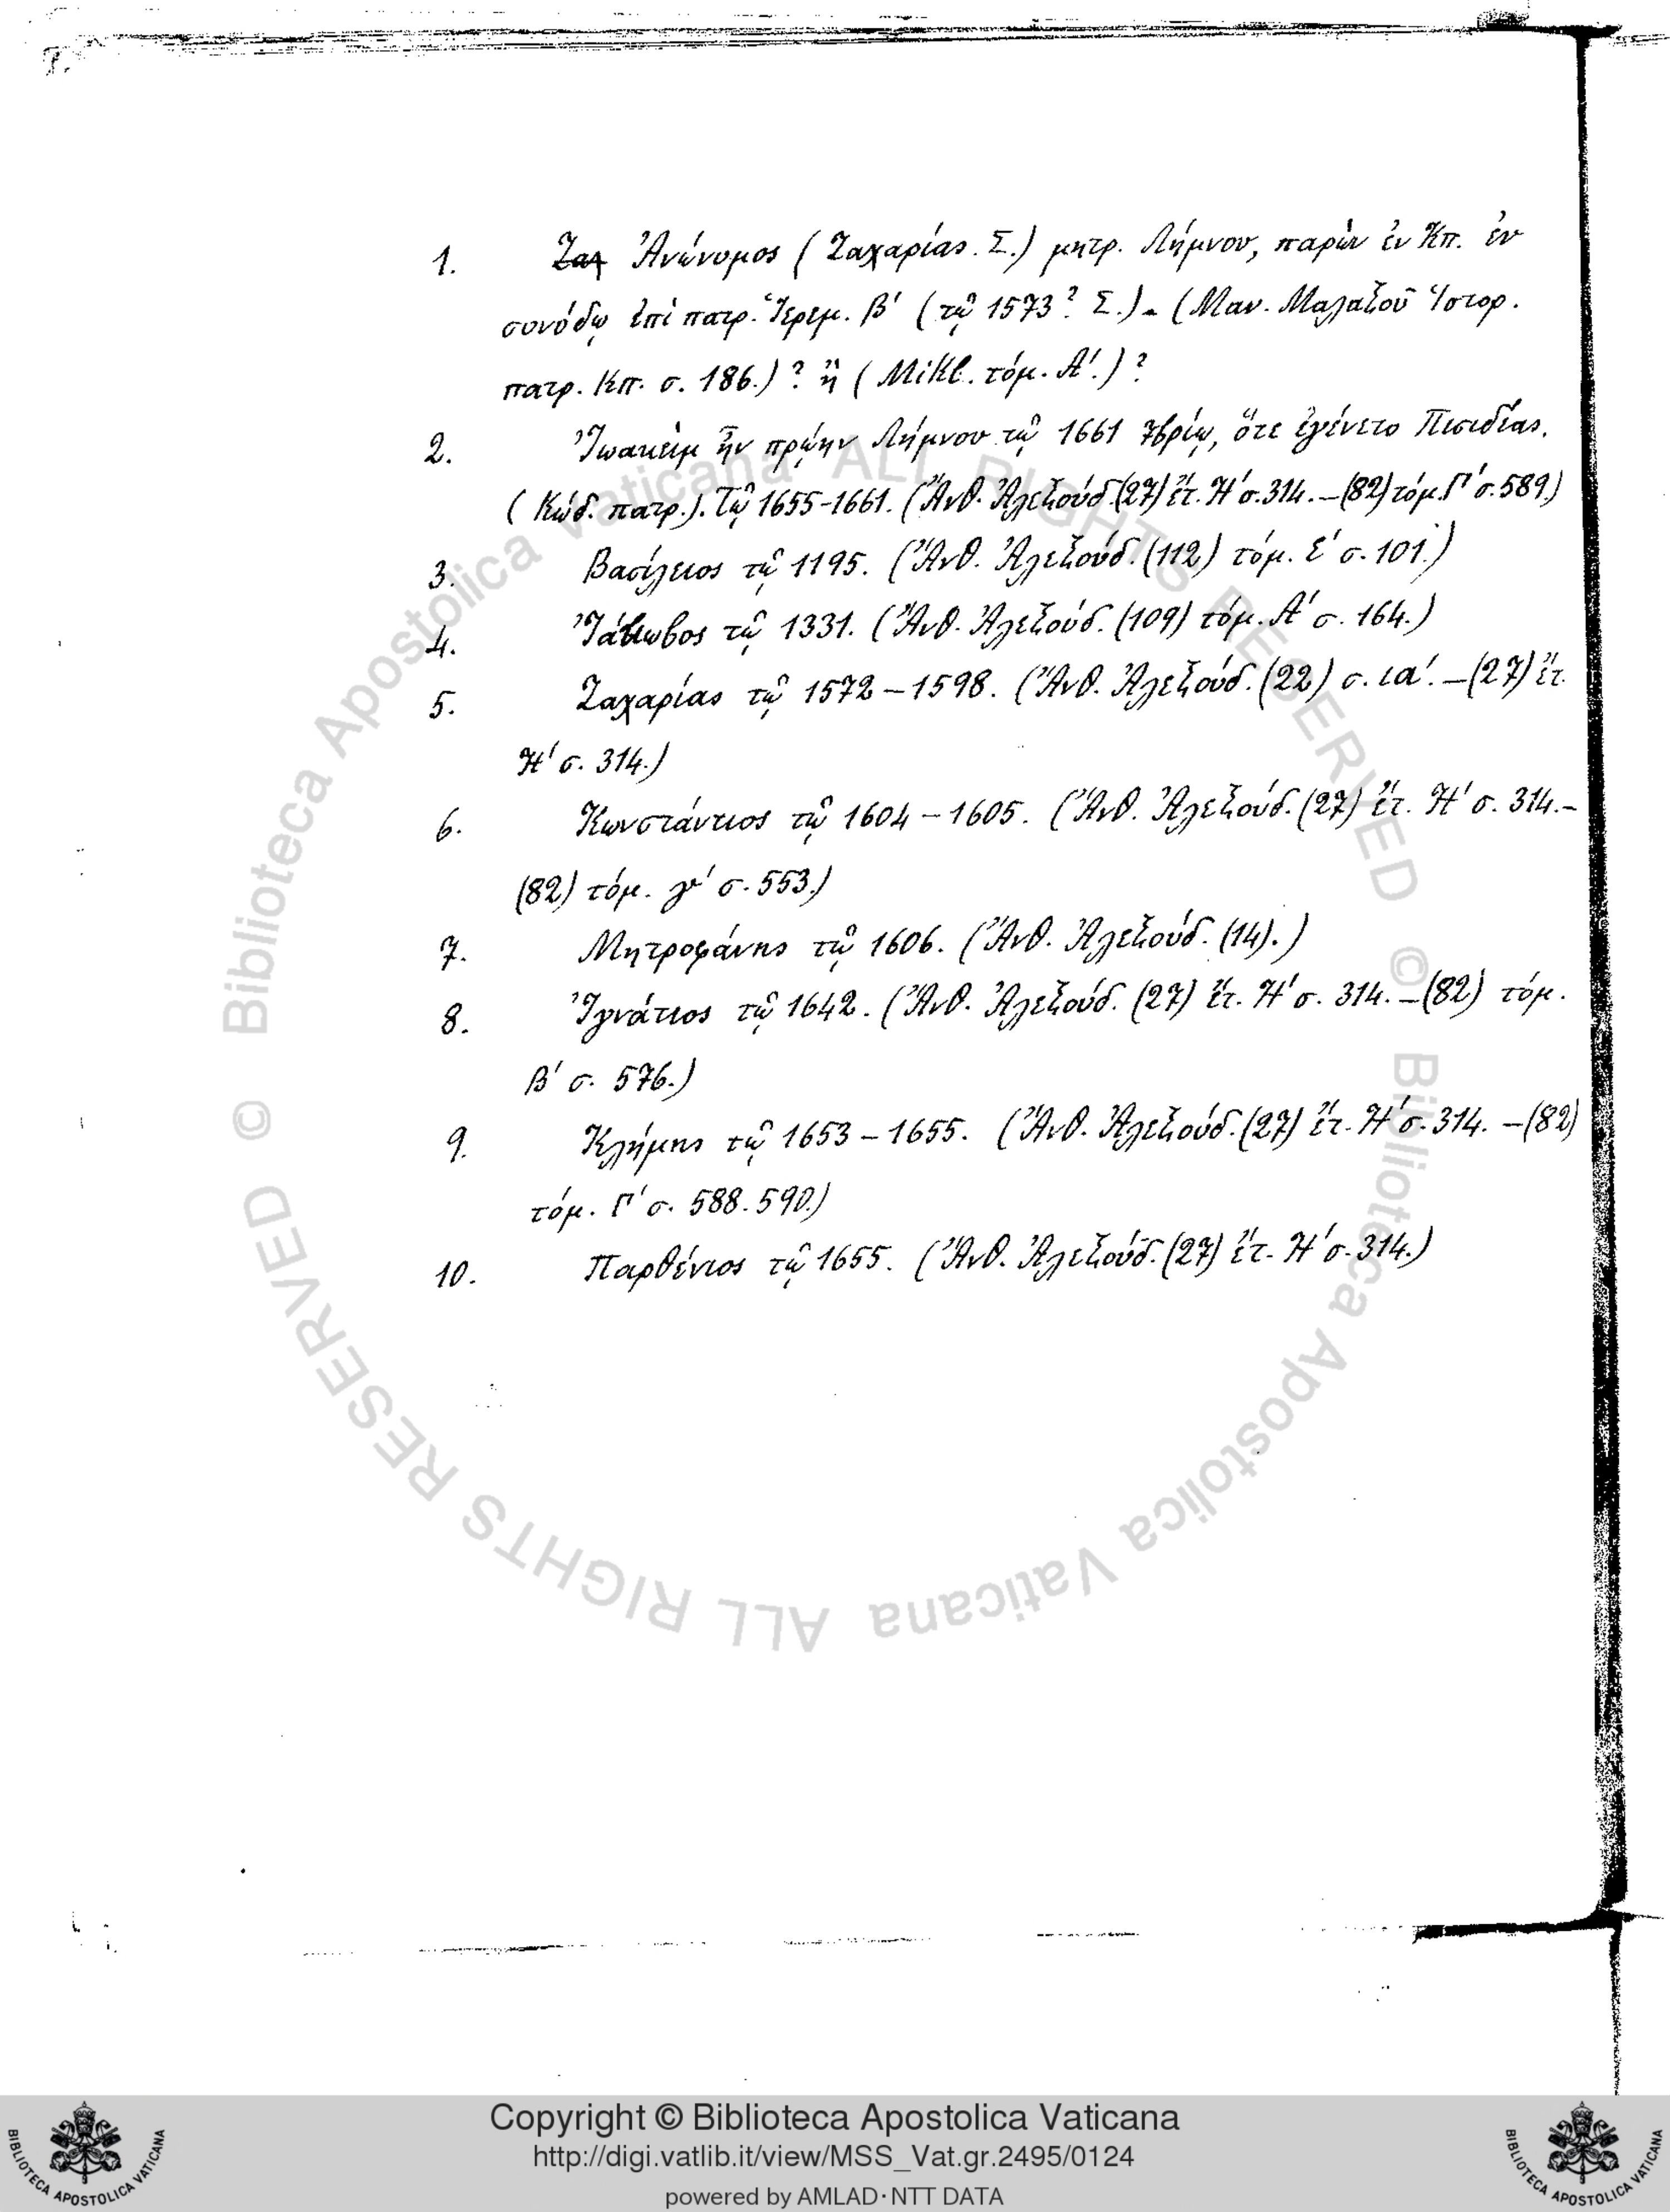 1. ~~Ζαχ~~ Ἀνώνυμος (Ζαχαρίας. Σ.) μητρ. Λήμνου, παρὼν ἐν Κπ. ἐν
συνόδῳ ἐπὶ πατρ. Ἱερεμ. Β' (τῷ 1573? Σ.) - (Μαν. Μαλαξοῦ Ἱστορ.
πατρ. Κπ. σ. 186.)? ἢ (Mikl. τόμ. Α'.)?
2. Ἰωακεὶμ ἦν πρῴην Λήμνου τῷ 1661 7βρίῳ, ὅτε ἐγένετο Πισιδίας.
(Κώδ. πατρ.). Τῷ 1655-1661. (Ἄνθ. Ἀλεξούδ. (27) ἔτ. Η' σ. 314. – (82) τόμ. Γ' σ. 589.)
3. Βασίλειος τῷ 1195. (Ἄνθ. Ἀλεξούδ. (112) τόμ. Ε' σ. 101.)
4. Ἰάκωβος τῷ 1331. (Ἄνθ. Ἀλεξούδ. (109) τόμ. Α' σ. 164.)
5. Ζαχαρίας τῷ 1572 – 1598. (Ἄνθ. Ἀλεξούδ. (22) σ. ια'. – (27) ἔτ.
Η' σ. 314.)
6. Κωνστάντιος τῷ 1604 – 1605. (Ἄνθ. Ἀλεξούδ. (27) ἔτ. Η' σ. 314. –
(82) τόμ. γ' σ. 553.)
7. Μητροφάνης τῷ 1606. (Ἄνθ. Ἀλεξούδ. (14).)
8. Ἰγνάτιος τῷ 1642. (Ἄνθ. Ἀλεξούδ. (27) ἔτ. Η' σ. 314. – (82) τόμ.
Β' σ. 576.)
9. Κλήμης τῷ 1653 – 1655. (Ἄνθ. Ἀλεξούδ. (27) ἔτ. Η' σ. 314. – (82)
τόμ. Γ' σ. 588. 590.)
10. Παρθένιος τῷ 1655. (Ἄνθ. Ἀλεξούδ. (27) ἔτ. Η' σ. 314.)
© Biblioteca Apostolica Vaticana ALL RIGHTS RESERVED © Biblioteca Apostolica Vaticana ALL RIGHTS RESERVED
Copyright © Biblioteca Apostolica Vaticana
http://digi.vatlib.it/view/MSS_Vat.gr.2495/0124
powered by AMLAD·NTT DATA
BIBLIOTECA APOSTOLICA VATICANA
BIBLIOTECA APOSTOLICA VATICANA